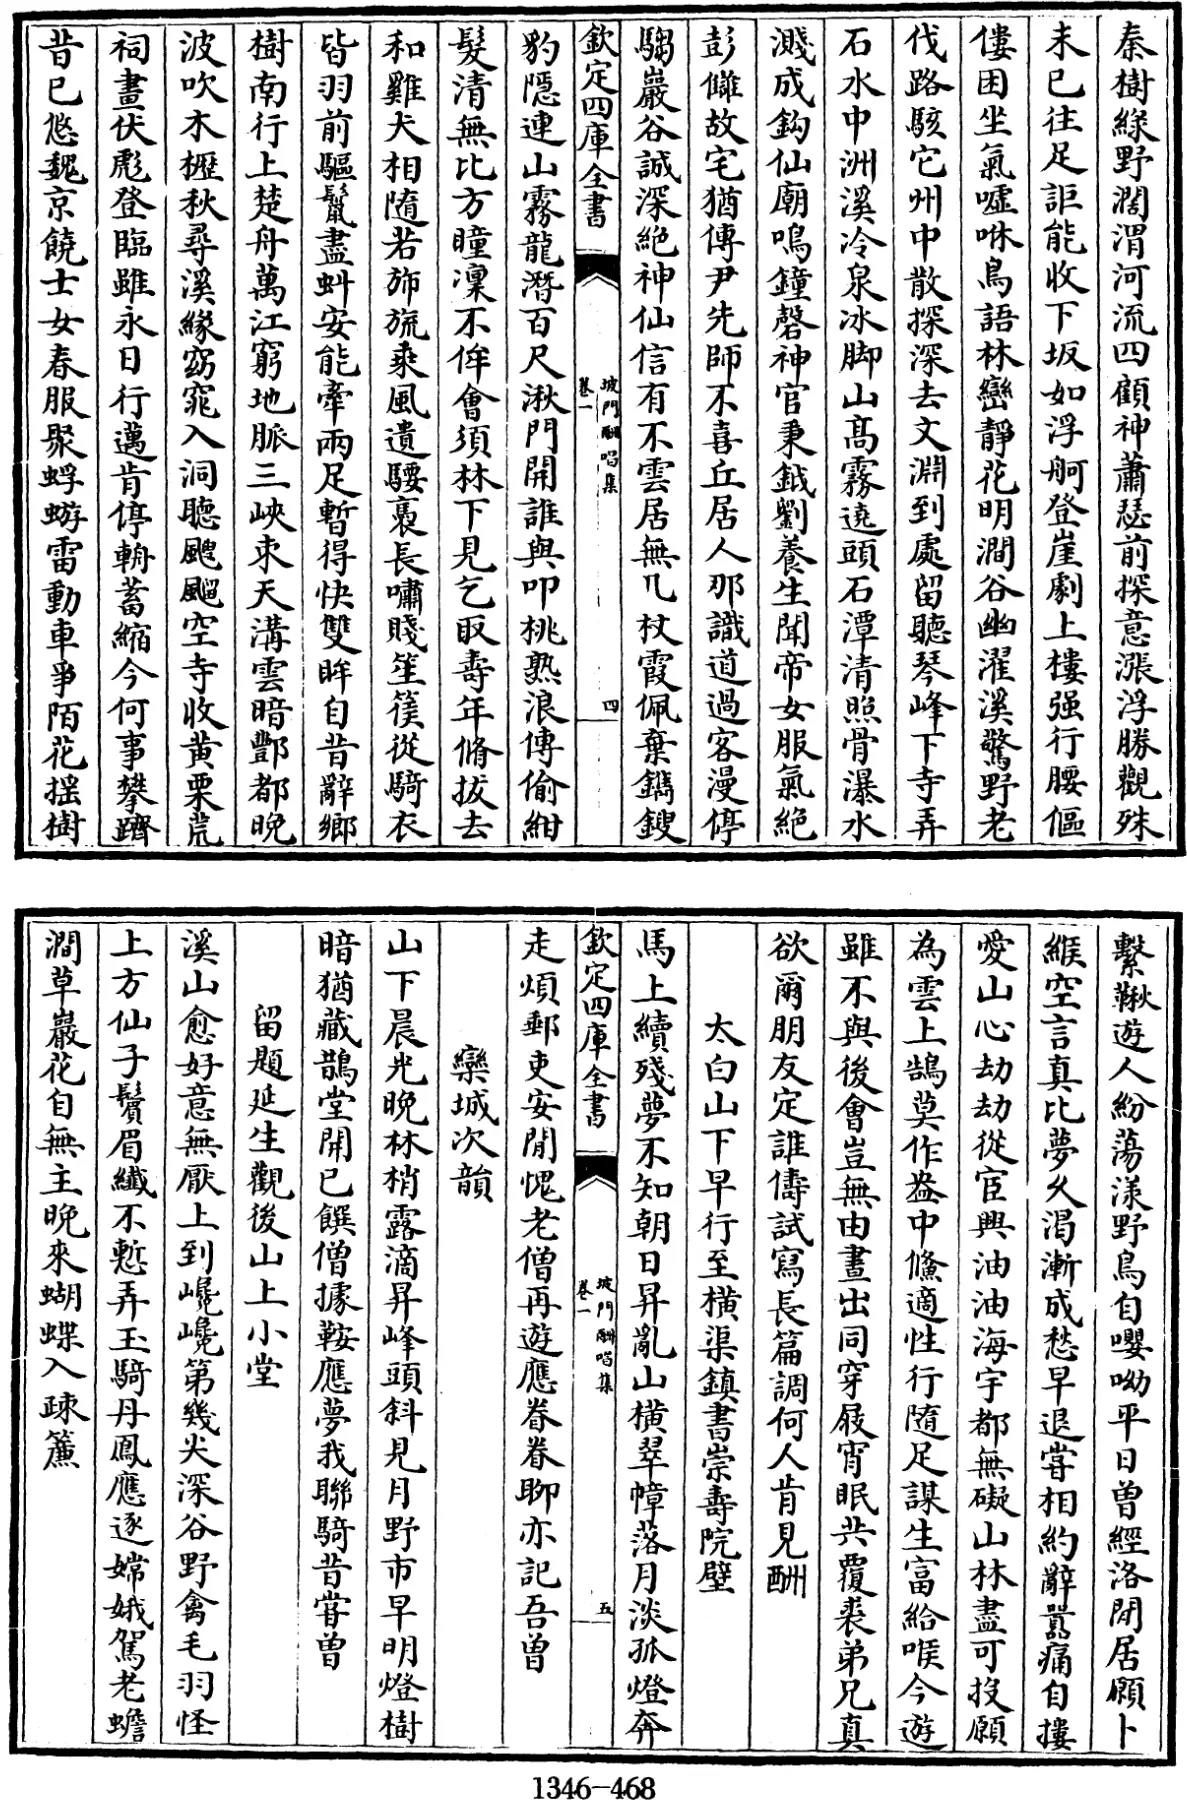 秦樹綠野濶渭河流四顧神蕭瑟前探意漲浮勝觀殊
未已往足詎能收下坂如浮舸登崖劇上樓强行腰傴
僂困坐氣噓咻鳥語林巒靜花明澗谷幽濯溪驚野老
伐路駭它州中散探深去文淵到處留聽琴峰下寺弄
石水中洲溪冷泉冰脚山髙霧遶頭石潭清照骨瀑水
濺成鈎仙廟鳴鐘磬神官秉鉞劉養生聞帝女服氣絶
彭讎故宅猶傳尹先師不喜丘居人那識道過客漫停
騶巖谷誠深絶神仙信有不雲居無几杖霞佩棄鐫鎪
欽定四庫全書
坡門酬唱集
卷一
四
豹隱連山霧龍潛百尺湫門開誰與叩桃熟浪傳偷紺
髮清無比方瞳凜不侔會須林下見乞取壽年脩拔去
和雞犬相隨若斾旒乘風遺騕褭長嘯賤笙篌從騎衣
皆羽前驅鬣盡虯安能牽兩足暫得快雙眸自昔辭鄉
樹南行上楚舟萬江窮地脈三峽束天溝雲暗酆都晚
波吹木櫪秋尋溪緣窈窕入洞聽颼飀空寺收黄栗荒
祠畫伏彪登臨雖永日行邁肯停輈蓄縮今何事攀躋
昔已悠魏京饒士女春服聚蜉蝣雷動車爭陌花摇樹
繫鞦遊人紛蕩漾野鳥自嚶呦平日曾經洛閒居願卜
緱空言真比夢久渴漸成愁早退嘗相約辭囂痛自摟
愛山心劫劫從宦興油油海宇都無礙山林盡可投願
為雲上鵠莫作盎中鯈適性行隨足謀生富給喉今遊
雖不與後會豈無由晝出同穿屐宵眠共覆裘弟兄真
欲爾朋友定誰儔試寫長篇調何人肯見酬
太白山下早行至橫渠鎮書崇壽院壁
馬上續殘夢不知朝日昇亂山橫翠幛落月淡孤燈奔
欽定四庫全書
坡門酬唱集
卷一
五
走煩郵吏安閒愧老僧再遊應眷眷聊亦記吾曾
欒城次韻
山下晨光晚林梢露滴昇峰頭斜見月野市早明燈樹
暗猶藏鵲堂開已饌僧據鞍應夢我聯騎昔嘗曾
留題延生觀後山上小堂
溪山愈好意無厭上到巉巉第幾尖深谷野禽毛羽怪
上方仙子鬢眉纖不慙弄玉騎丹鳳應逐嫦娥駕老蟾
澗草巖花自無主晚來蝴蝶入疎簾
1346-468